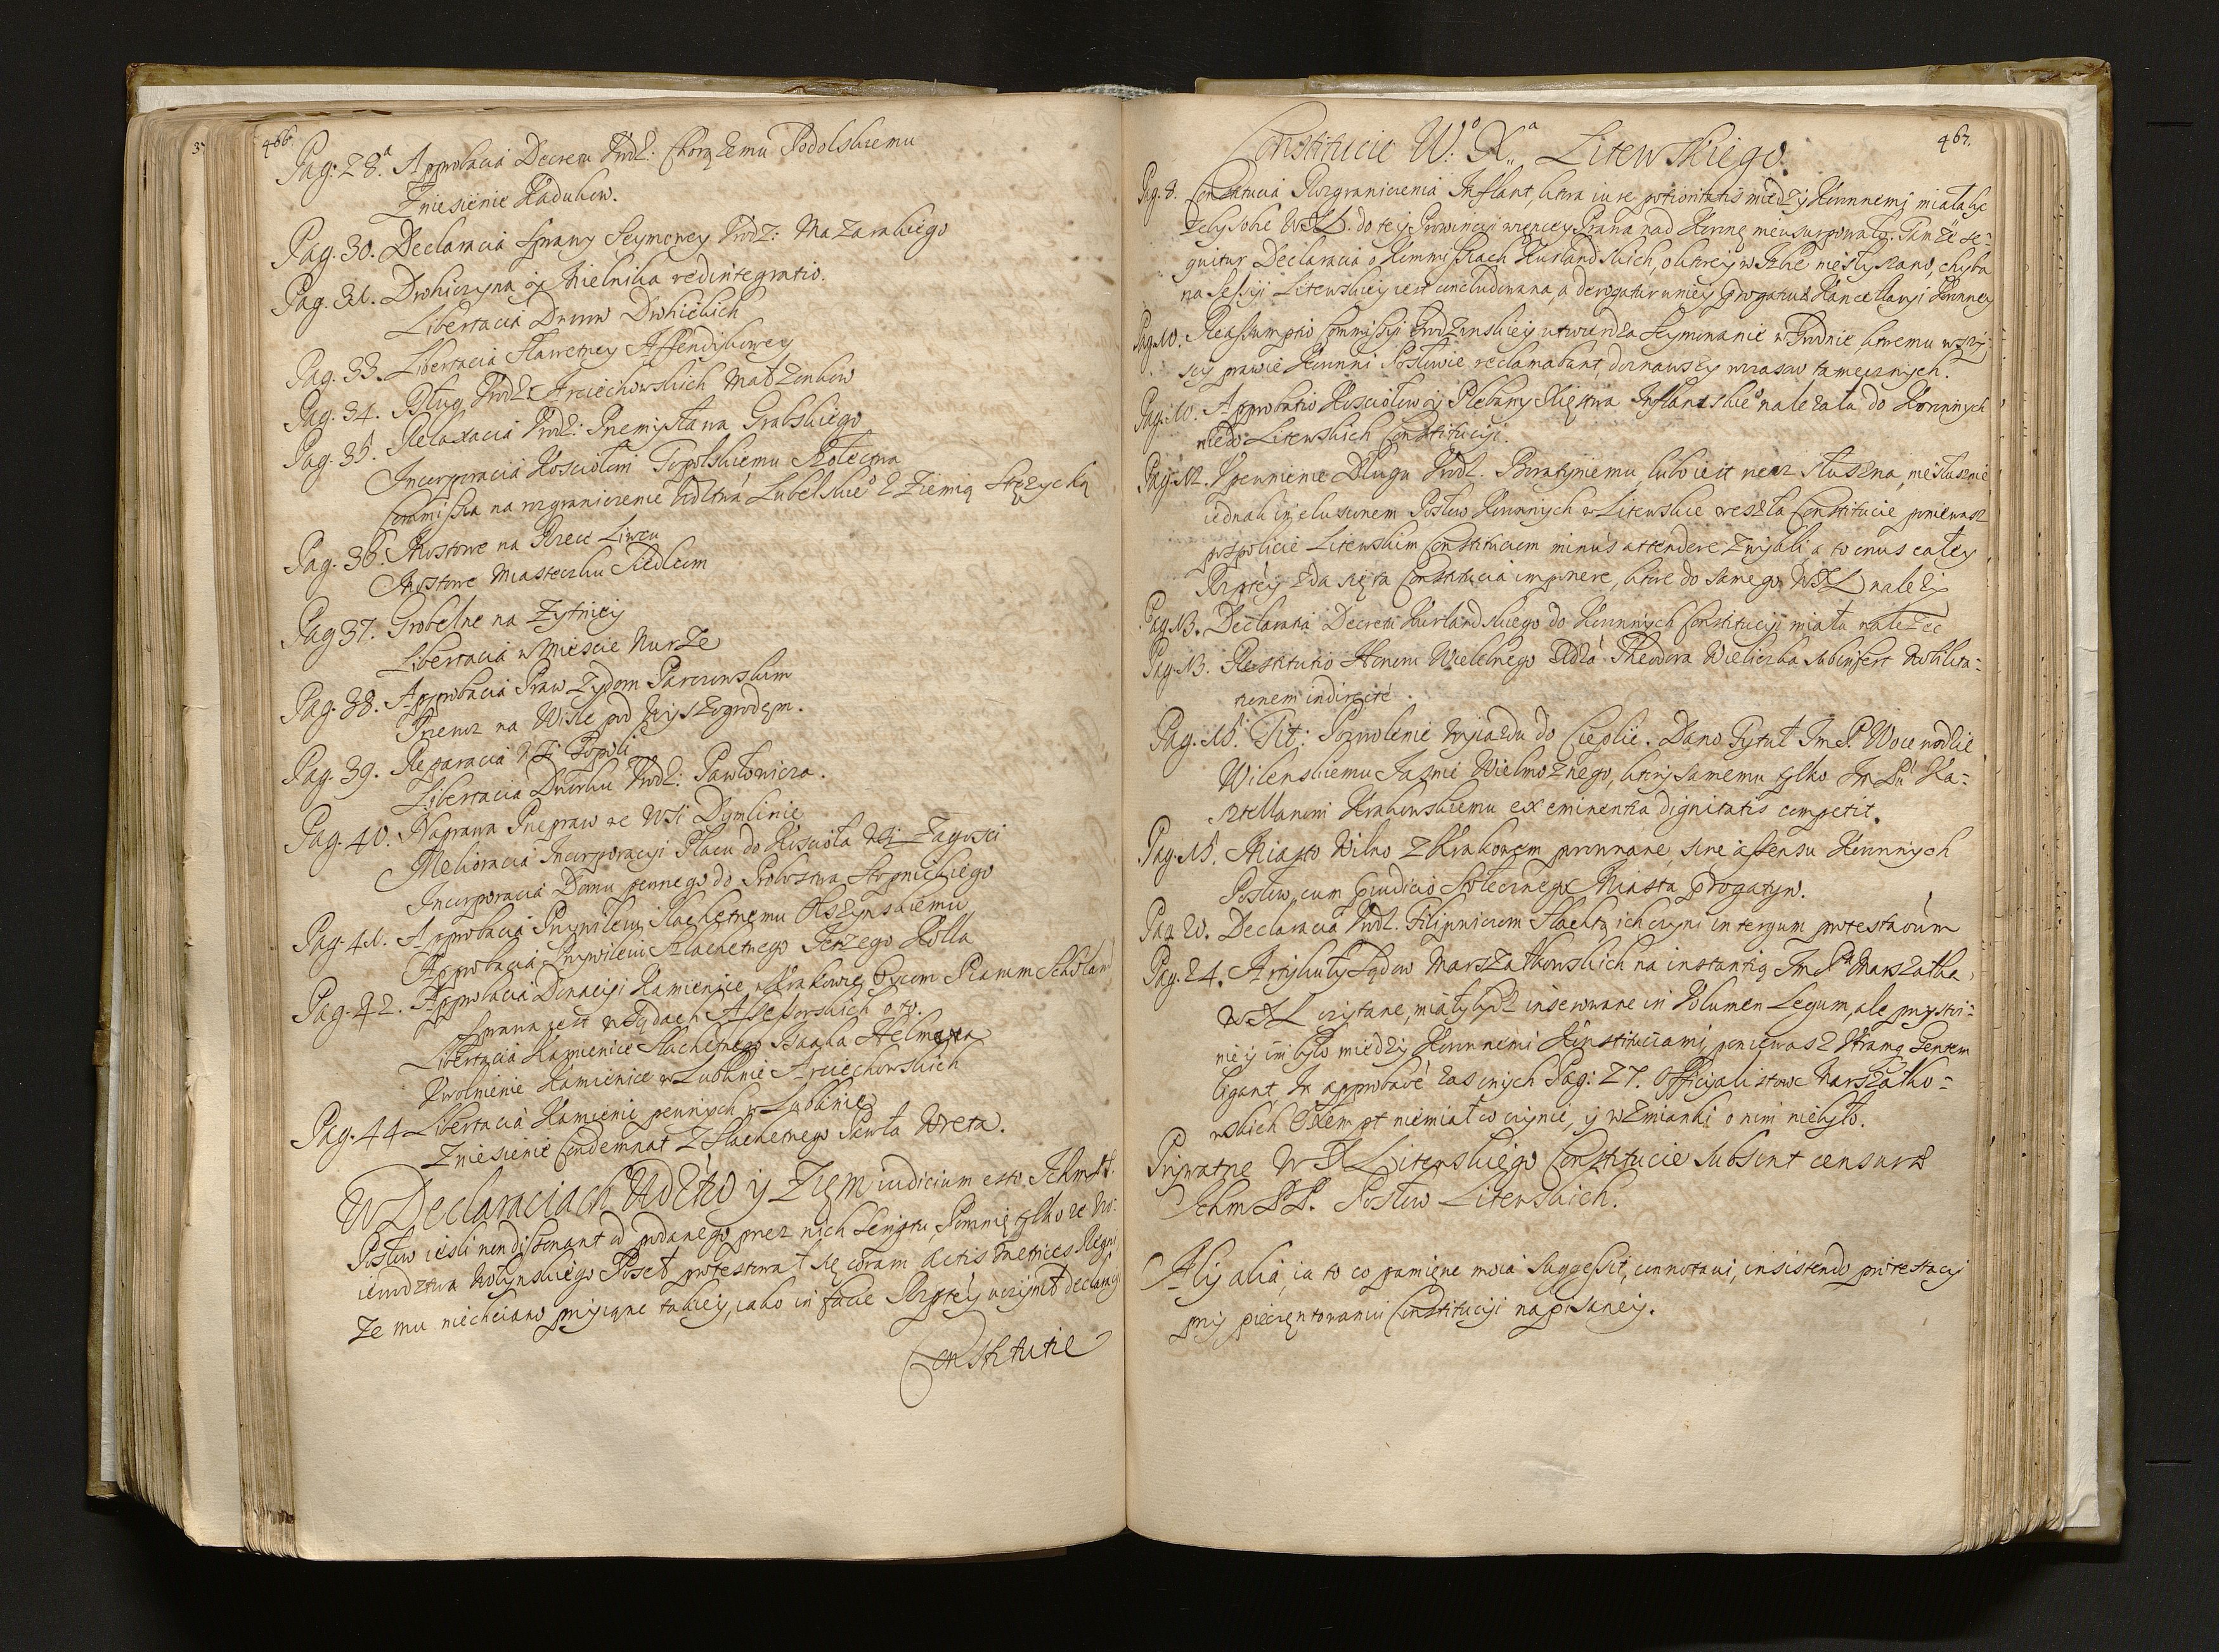 466.
Pag: 28.ª Approbacia Decretu Urodz: Chorążemu Podolskiemu
Zniesienie Kadukow.
Pag. 30. Declaracia sprawy Seymowey Urodz: Mazarakiego
Pag. 31. Drohiczyna y Mielnika redintegratio.
Libertacia Dworow Drohickich
Pag. 33. Libertacia Sławetney Affendykowey
Pag. 34. Dług Urodz: Arciechowskich Małżonkow
Pag. 35. Relaxacia Urodz: Przemysława Grabskiego
Incorporacia Kosciołowi Topolskiemu Sołectwa
Commissia na rozgraniczenie Wdztwa Lubelskieº z Ziemią Stężycką
Pag. 36. Mostowe na Rzece Liwcu
Mostowe Miasteczku Siedlcom
Pag 37. Grobelne na Zytniey
Libertacia w Miescie Nurze
Pag. 38. Approbacia Praw Zydom Parczowskim
Przewoz na Wisle pod Wyszogrodem.
Pag. 39. Reparacia Wsi Topoli
Libertacia Dworku Urodz: Pawłowicza.
Pag. 40. Naprawa Przepraw we Wsi Dymlinie
Melioracia Incorporacyi Placu do Koscioła Wsi Zagosci
Incorporacia Domu pewnego do Probostwa Stopnickiego
Pag. 41. Approbacia Przywileiu Slachetnemu Olszynskiemu
Approbacia Przywileiu Szlachetnego Jerzego Holla
Pag. 42. Approbacia Donacyi Kamienice w Krakowie Ojcom Piarum Scholarum
Sprawa jest w Sądach Assessorskich o to.
Libertacia Kamienice Slachetnego Izaaka
Uwolnienie Kamienice w Lublinie Arciechowskich
Pag. 44 Libertacia Kamienic pewnych w Lublinie
Zniesienie Condemnat z Slachetnego Pawła Wreta.
W Declaraciach Wdztw y Ziem iudicium esto Ichm PP.
Posłow iesli non dissonant od podanego przez nich scriptu, Pomnię tylko ze Wo:
iewodztwa Wołynskiego Poseł protestował się coram Actis Metrices Regni
Ze mu niechciano przyiąc takiey, iako in facie Rzptey uczynił declaracyi
Constitutie
467.
Constitucie W.º X.ª Litewskiego.
Pag. 8. Constitucia Rozgraniczenia Inflant, ktora iure potioritatis między Koronnemi miała byc
zeby sobie WXL. do tey Prowincyi więncey Prawa nad Koronę nieusurpowało. Tamże se=
quitur Declaracia o Kommissiach Kurlandskich, o ktorey w Izbie niesłyszano, chyba
na Sessyi Litewskiey iest concludowana, a derogatur w niey Prerogatiwae Kancellaryi Koronney
Pag. 10. Reassumptio Commissyi Grodzinskiey utwierdza Seymowanie w Grodnie, ktoremu wszy=
scy prawie Koronni Posłowie reclamabunt, doznawszy wczasow tamecznych.
Pag. 10. Approbatio Kosciołow y Plebany Xięstwa Inflantskieº nalezała do Koronnych
niedo Litewskich Constitucyi.
Pag. 12. Upewnienie Długu Urodz. Boratyniemu, lubo iest rzecz słuszna, niesłusznie
iednak in elusionem Posłow Koronnych w Litewskie weszła Constitucie poniewasz
pospolicie Litewskim Constituciom minus attendere zwykli a to onus całey
Rzptey zda się ta Constitucia imponere, ktore do samego WXL należy
Pag 13. Declaratia Decretu Kurlandskiego do Koronnych Constitucyi miała należec
Pag 13. Restitutio Honoru Wielebnego Xdza Theodora Wieliczka subinfert Nobilita=
tionem indirectè.
Pag. 15. Tit: Pozwolenie wyiazdu do Cieplic. Dano Tytuł Im P. Woiewodzie
Wilenskiemu Jasnie Wielmożnego, ktory samemu tylko Im Pu Ka=
sztellanowi Krakowskiemu ex eminentia dignitatis competit.
Pag. 15. Miasto Wilno z Krakowem porownane, sine assensu Koronnych
Posłow, cum praeiudicio Stołecznego Miasta prerogatyw.
Pag 20. Declaracia Urodz. Filipowiczom Slachtą ich czyni in tergum protestaoum
Pag. 24. Artykuły Sądow Marszałkowskich na instantią Im Pa Marszałka
WXL czytane, miały bydz inserowane in Volumen Legum, ale przystoi=
niey im było miedzy Koronnemi Konstituciami, poniewasz utramq Gentem
ligant, In approbatè zaś onych Pag: 27. Officyalistowe Marszałko=
wskich Exempt niemiał co czynic, y wzmianki o nim niebyło.
Prywatne W X Litewskiego Constitucie subsint censurae
Ichm PP. Posłow Litewskich.
Alij alia, ia to co pamięnc moia suggessit, connotavi, insistendo protestacyi
przy pieczęntowaniu Constitucyi napisaney.